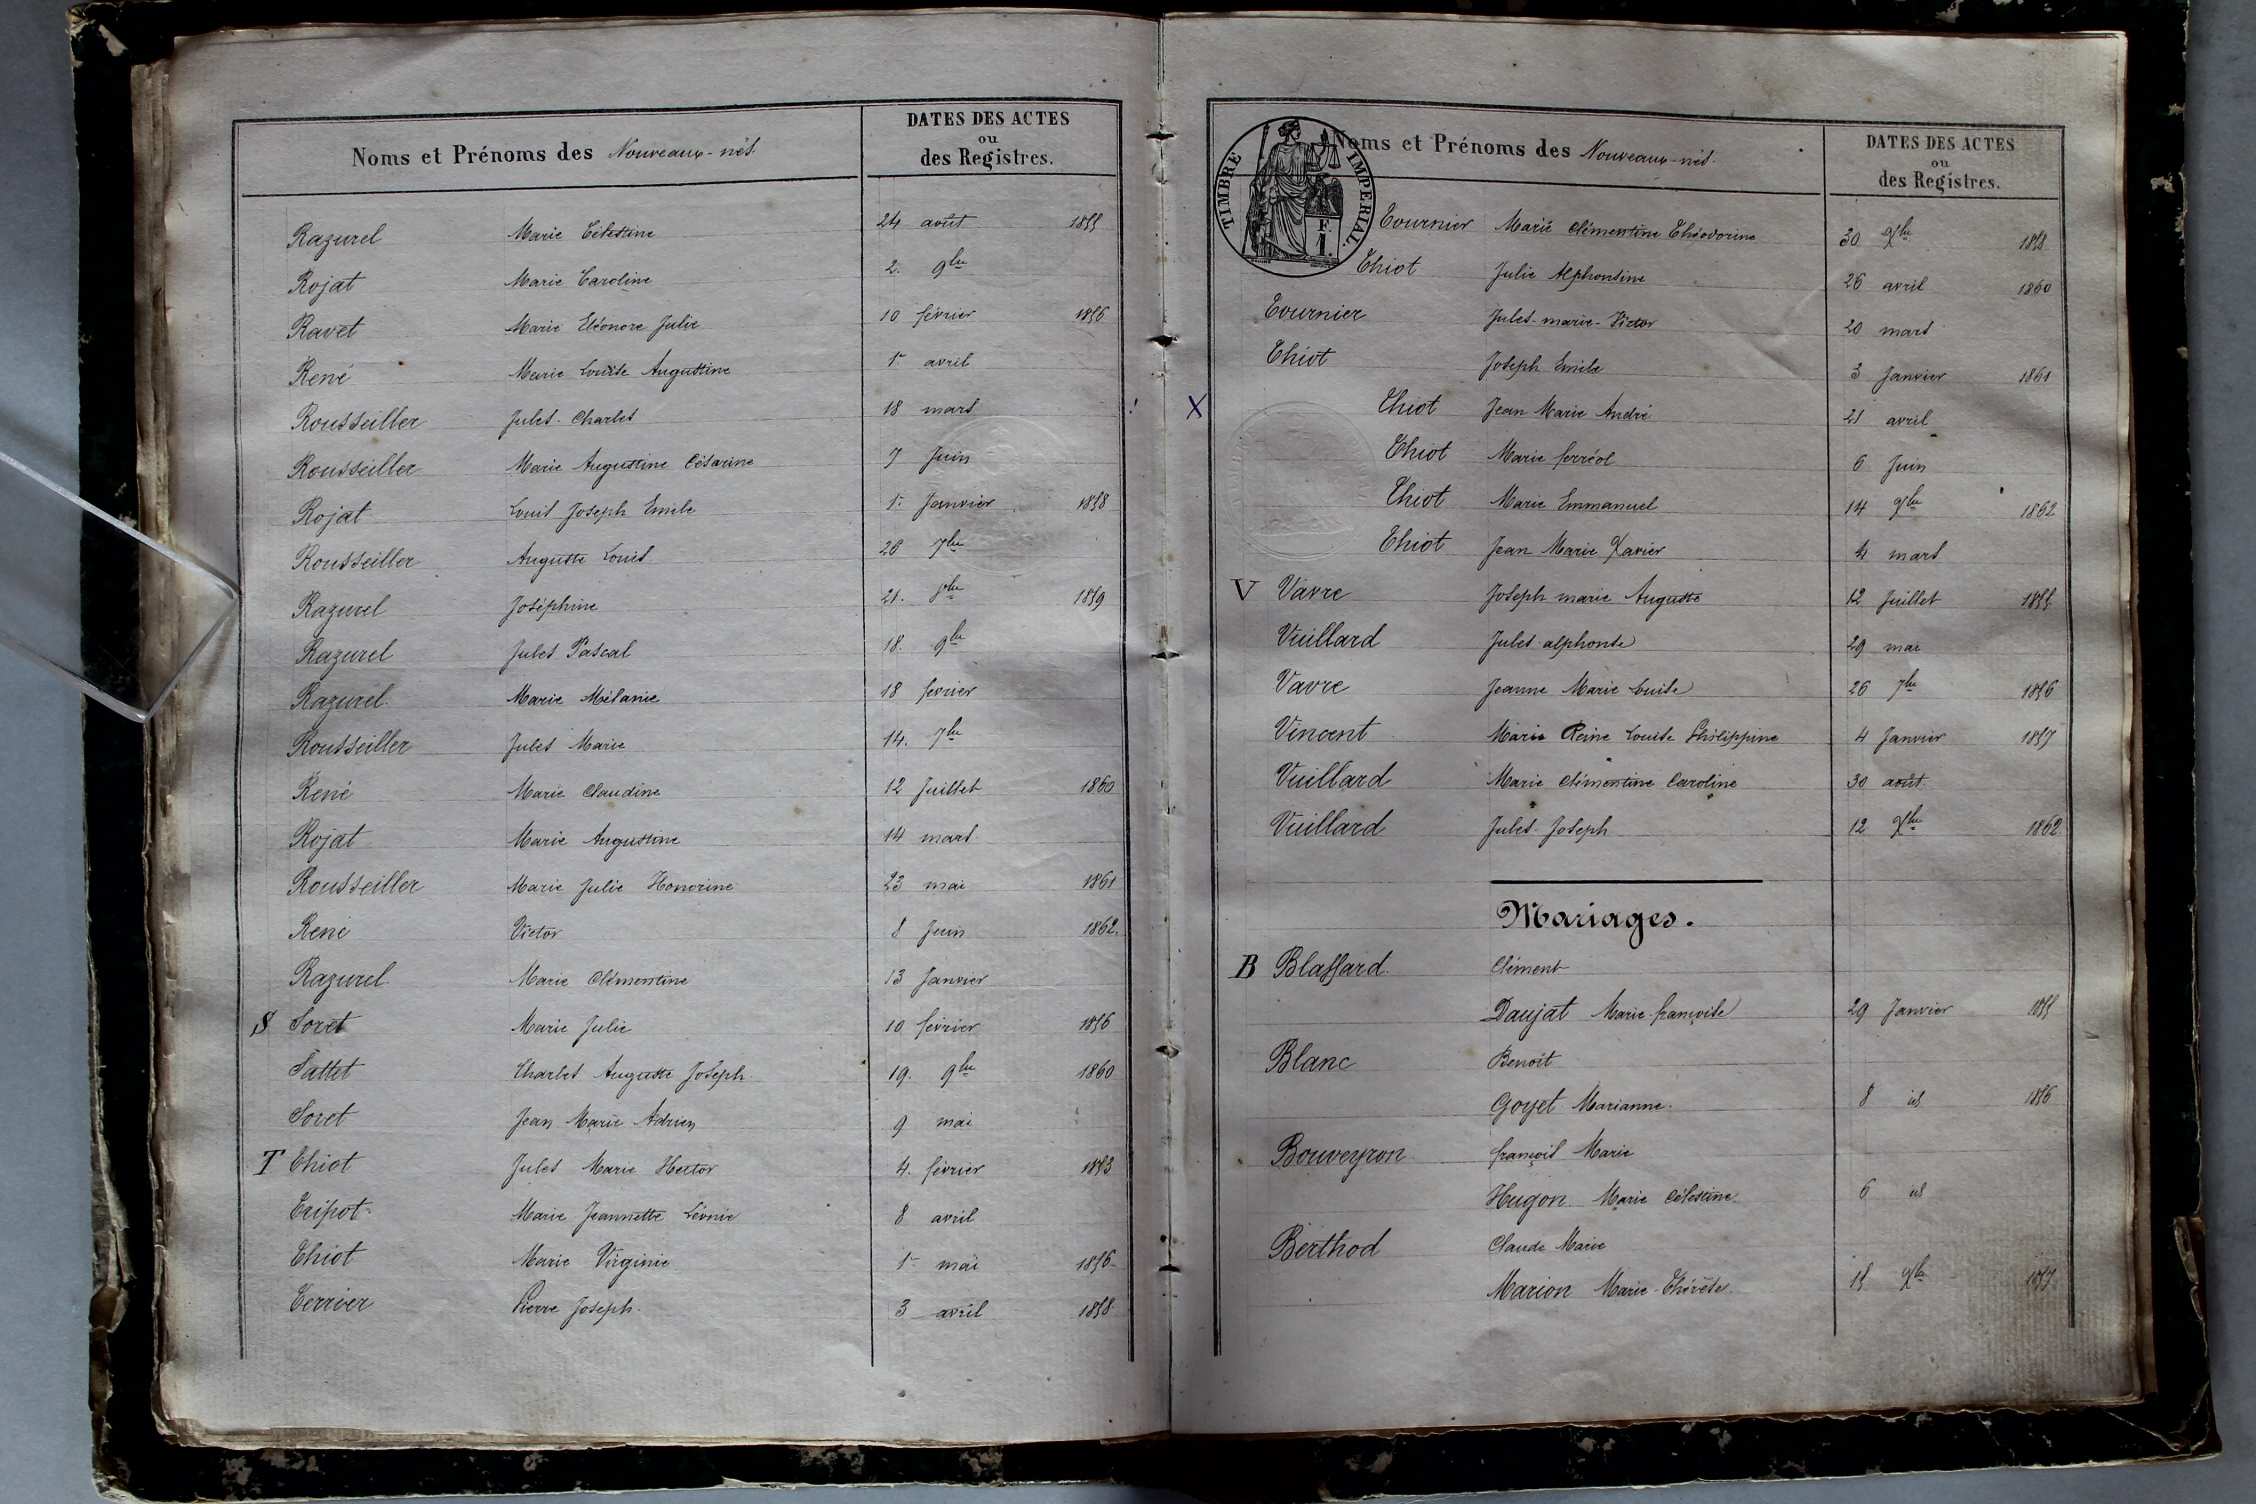 Noms et Prénoms des Nouveaux-nés.
DATES DES ACTES
ou
des Registres.
Razurel Marie Célestine 24 août 1855
Rojat Marie Caroline 2. 9bre
Ravet Marie Eléonore Julie 10 février 1856
René Marie Louise Augustine 1er avril
Rousseiller Jules Charles 18 mars
Rousseiller Marie Augustine Césarine 7 Juin
Rojat Louis Joseph Emile 1er Janvier 1858
Rousseiller Auguste Louis 26 7bre
Razurel Joséphine 21. 8bre 1859
Razurel Jules Pascal 18. 9bre
Razurel Marie Mélanie 18 février
Rousseiller Jules Marie 14. 7bre
René Marie Claudine 12 Juillet 1860
Rojat Marie Augustine 14 mars
Rousseiller Marie Julie Honorine 23 mai 1861
René Victor 8 Juin 1862.
Razurel Marie Clémentine 13 Janvier
S Soret Marie Julie 10 février 1856
Sattet Charles Auguste Joseph 19. 9bre 1860
Soret Jean Marie Adrien 9 mai
T Thiot Jules Marie Hector 4. février 1853
Tripot Marie Jeannette Léonie 8 avril
Thiot Marie Virginie 1er mai 1856
Terrier Pierre Joseph 3 avril 1858
TIMBRE IMPERIAL.
F.
1.
Noms et Prénoms des Nouveaux-nés.
DATES DES ACTES
ou
des Registres.
Tournier Marie Clémentine Théodorine 30 Xbre 1858
Thiot Julie Alphonsine 26 avril 1860
Tournier Jules-marie-Victor 20 mars
Thiot Joseph Emile 3 Janvier 1861
X Thiot Jean Marie André 21 avril
Thiot Marie ferréol 6 Juin
Thiot Marie Emmanuel 14 9bre 1862
Thiot Jean Marie Xavier 4 mars
V Vavre Joseph marie Auguste 12 Juillet 1855
Vuillard Jules alphonse 29 mai
Vavre Jeanne Marie Louise 26 7bre 1856
Vincent Marie Reine Louise Philippine 4 Janvier 1857
Vuillard Marie Clémentine Caroline 30 août
Vuillard Jules Joseph 12 Xbre 1862
Mariages.
B Blaffard Clément
Daujat Marie françoise 29 Janvier 1855
Blanc Benoît
Goyet Marianne. 8 id 1856
Bouveyron françois Marie
Hugon Marie Célestine 6 id
Berthod Claude Marie
Marion Marie-Thérèse 15 Xbre 1857